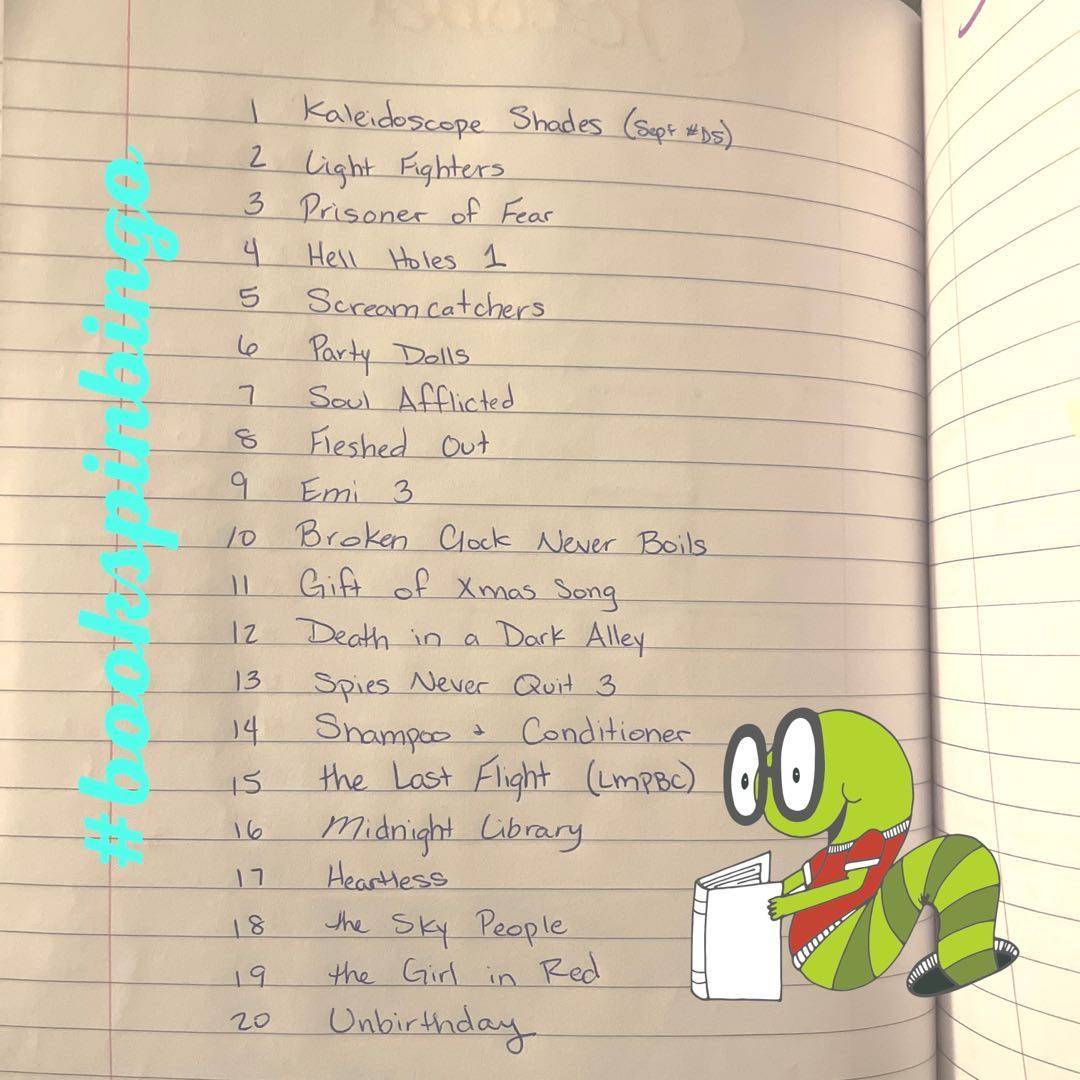 #bookspinbingo
1 Kaleidoscope Shades (Sept #DS)
2 Light Fighters
3 Prisoner of Fear
4 Hell Holes 1
5 Screamcatchers
6 Party Dolls
7 Soul Afflicted
8 Fleshed Out
9 Emi 3
10 Broken Clock Never Boils
11 Gift of Xmas Song
12 Death in a Dark Alley
13 Spies Never Quit 3
14 Shampoo + Conditioner
15 the Last Flight (LMPBC)
16 Midnight Library
17 Heartless
18 the Sky People
19 the Girl in Red
20 Unbirthday